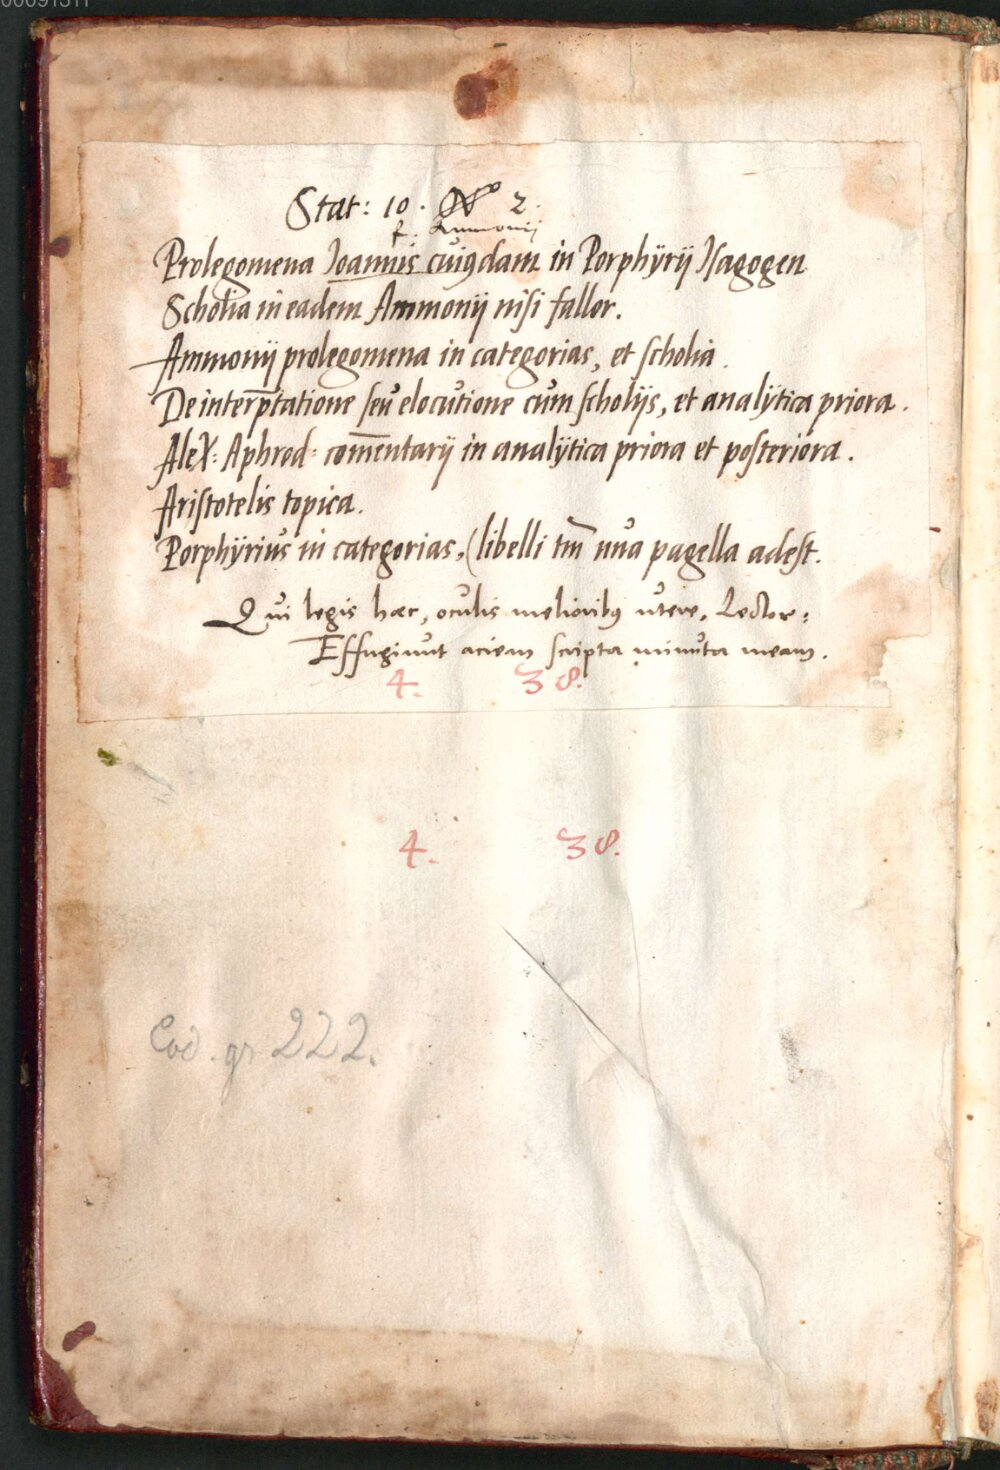 Stat: 10. No 2.
f. Ammonij
Prolegomena Joannis cuiusdam in Porphÿrij Isagogen
Scholia in eadem Ammonij nisi fallor.
Ammonij prolegomena in categorias, et scholia.
De interp̄tatione seu elocutione cum scholijs, et analÿtica priora.
Alex: Aphrod: com̄entarij in analÿtica priora et posteriora.
Aristotelis topica.
Porphÿrius in categorias, (libelli tm̄ una pagella adest.
Qui legis hæc, oculis melioribꝰ utere, Lector:
Effugiunt aciem scripta minuta meam.
4. 38.
4. 38.
Cod. gr 222.